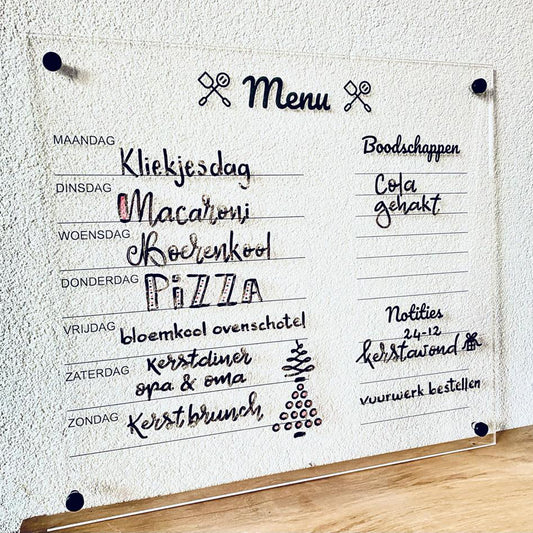 Menu
MAANDAG Kliekjesdag
DINSDAG Macaroni
WOENSDAG Boerenkool
DONDERDAG PIZZA
VRIJDAG bloemkool ovenschotel
ZATERDAG kerstdiner
opa & oma
ZONDAG Kerstbrunch
Boodschappen
Cola
gehakt
Notities
24-12
kerstavond
vuurwerk bestellen